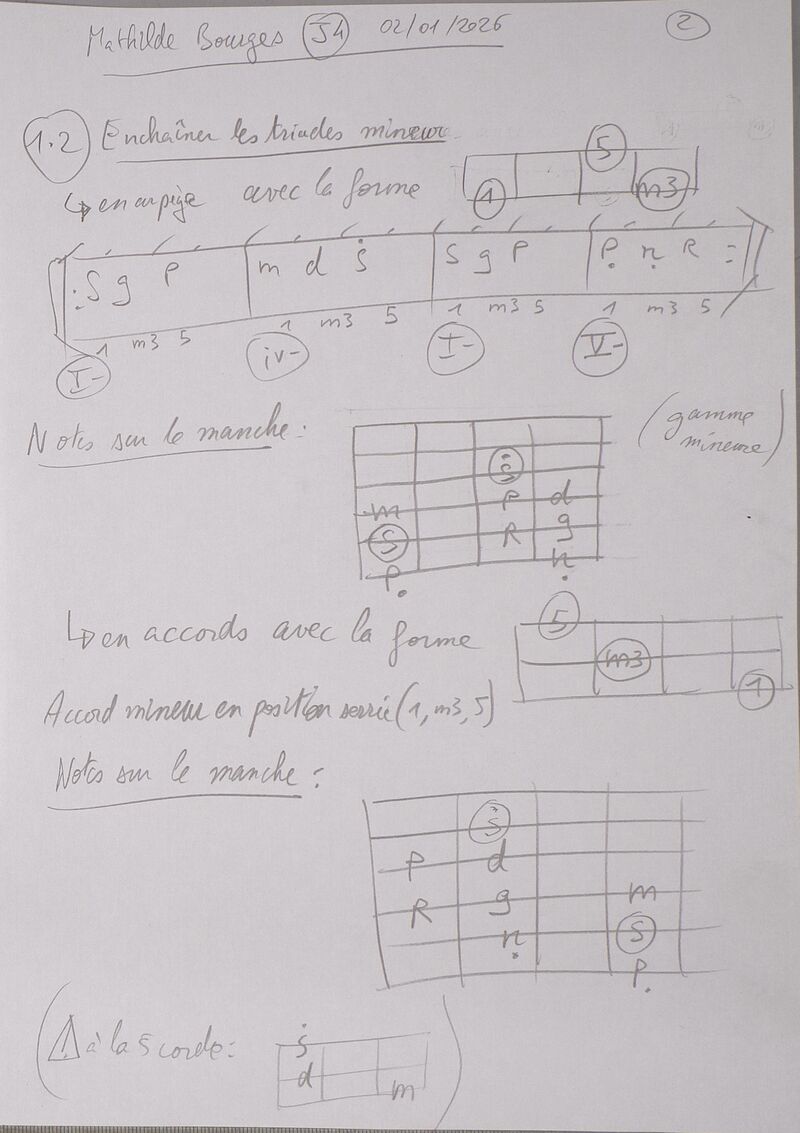 Mathilde Bourges J4 02/01/2026 2
1.2 Enchaîner les triades mineur
↳ en arpège avec la forme
5
1 m3
: S g P m d ṡ S g P Ṗ ṇ R :
1 m3 5 1 m3 5 1 m3 5 1 m3 5
I- iv- I- V-
Notes sur le manche :
(gamme
mineure)
ṡ
m P d
S R g
P. ṇ
↳ en accords avec la forme
5
m3
1
Accord mineur en position serrée (1, m3, 5)
Notes sur le manche :
ṡ
P d
R g m
ṇ S
P.
(⚠ à la 5 corde :
ṡ
d
m)